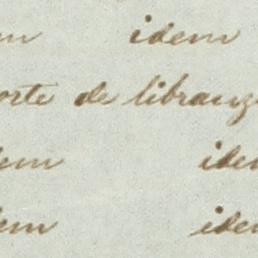 em idem
orte de libranz
dem ide
dem ide